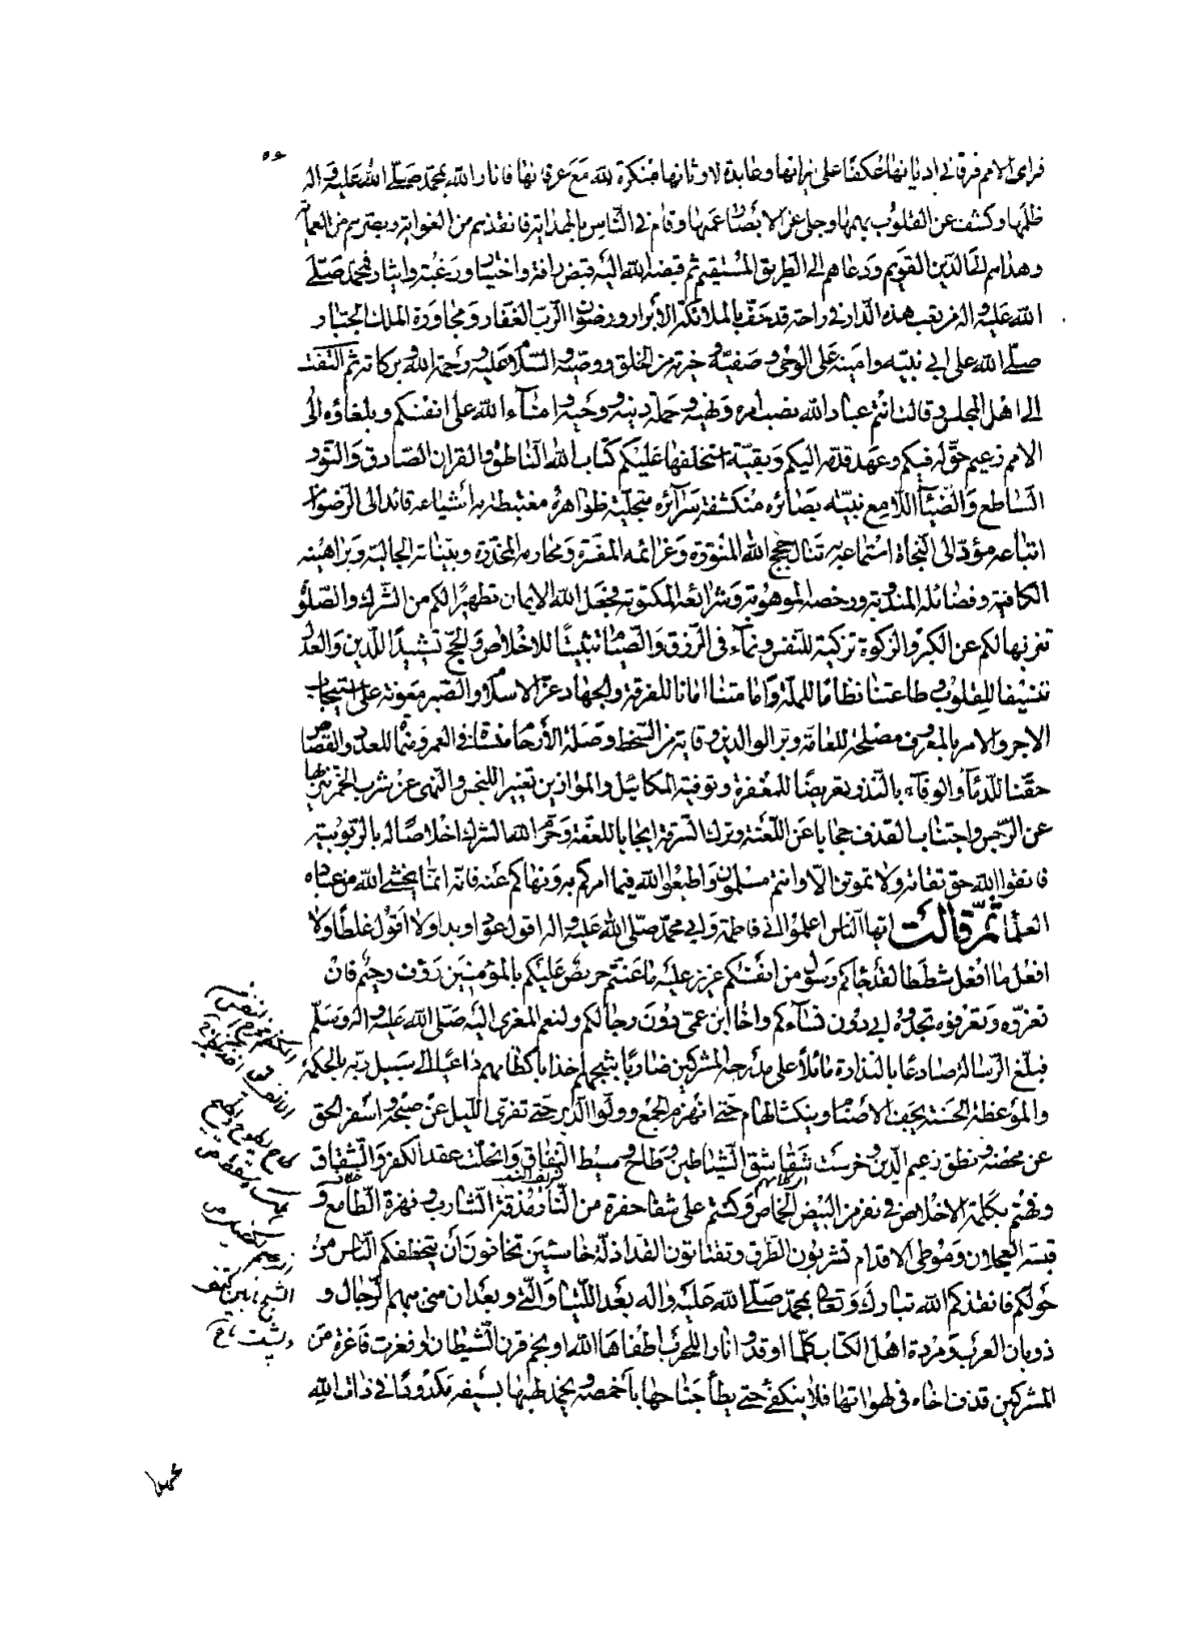 فراى الامم فرقا في اديانها عكفا على نيرانها وعابدة لاوثانها منكرة لله مع عرفانها فانار الله بمحمد صلى الله عليه واله
ظلمها وكشف عن القلوب بهمها وجلى عن الابصار عمهها وقام في الناس بالهداية فانقذهم من الغواية وبصرهم من العماية
وهداهم الى الدين القويم ودعاهم الى الطريق المستقيم ثم قبضه الله اليه قبض رافة واختيار ورغبة وايثار فمحمد صلى
الله عليه واله من تعب هذه الدار في راحة قد حف بالملائكة الابرار ورضوان الرب الغفار ومجاورة الملك الجبار
صلى الله على ابي نبيه وامينه على الوحي وصفيه وخيرته من الخلق ورضيه والسلام عليه ورحمة الله وبركاته ثم التفتت
الى اهل المجلس وقالت انتم عباد الله نصب امره ونهيه وحملة دينه ووحيه وامناء الله على انفسكم وبلغاؤه الى
الامم زعيم حق له فيكم وعهد قدمه اليكم وبقية استخلفها عليكم كتاب الله الناطق والقران الصادق والنور
الساطع والضياء اللامع بينة بصائره منكشفة سرآئره متجلية ظواهره مغتبطة به اشياعه قائد الى الرضوان
اتباعه مؤد الى النجاة استماعه به تنال حجج الله المنورة وعزائمه المفسرة ومحارمه المحذرة وبيناته الجالية وبراهينه
الكافية وفضائله المندوبة ورخصه الموهوبة وشرائعه المكتوبة فجعل الله الايمان تطهيرا لكم من الشرك والصلوة
تنزيها لكم عن الكبر والزكوة تزكية للنفس ونماء في الرزق والصيام تثبيتا للاخلاص والحج تشييدا للدين والعدل
تنسيقا للقلوب وطاعتنا نظاما للملة وامامتنا امانا للفرقة والجهاد عزا للاسلام والصبر معونة على استيجاب
الاجر والامر بالمعروف مصلحة للعامة وبر الوالدين وقاية من السخط وصلة الارحام منساة في العمر ومنماة للعدد والقصاص
حقنا للدماء والوفاء بالنذر تعريضا للمغفرة وتوفية المكائيل والموازين تغييرا للبخس والنهي عن شرب الخمر تنزيها
عن الرجس واجتناب القذف حجابا عن اللعنة وترك السرقة ايجابا للعفة وحرم الله الشرك اخلاصا له بالربوبية
فاتقوا الله حق تقاته ولا تموتن الا وانتم مسلمون واطيعوا الله فيما امركم به ونهاكم عنه فانه انما يخشى الله من عباده
العلماء ثم قالت ايها الناس اعلموا اني فاطمة وابي محمد صلى الله عليه واله اقول عودا وبدا ولا اقول غلطا ولا
افعل ما افعل شططا لقد جاءكم رسول من انفسكم عزيز عليه ما عنتم حريص عليكم بالمؤمنين رؤف رحيم فان
تعزوه وتعرفوه تجدوه ابي دون نسآءكم واخا ابن عمي دون رجالكم ولنعم المعزى اليه صلى الله عليه واله وسلم
فبلغ الرسالة صادعا بالنذارة مائلا على مدرجة المشركين ضاربا ثبجهم اخذا باكظامهم داعيا الى سبيل ربه بالحكمة
والموعظة الحسنة يجف الاصنام وينكث الهام حتى انهزم الجمع وولوا الدبر حتى تفرى الليل عن صبحه واسفر الحق
عن محضه ونطق زعيم الدين وخرست شقاشق الشياطين وطاح وسيط النفاق وانحلت عقد الكفر والشقاق
وفهتم بكلمة الاخلاص في نفر من البيض الخماص وكنتم على شفا حفرة من النار مذقة الشارب ونهزة الطامع و
قبسة العجلان وموطئ الاقدام تشربون الطرق وتقتاتون القد اذلة خاسئين تخافون ان يتخطفكم الناس من
حولكم فانقذكم الله تبارك وتعالى بمحمد صلى الله عليه واله بعد اللتيا والتي وبعد ان مني ببهم الرجال و
ذوبان العرب ومردة اهل الكتاب كلما اوقدوا نارا للحرب اطفاها الله او نجم قرن الشيطان او فغرت فاغرة من
المشركين قذف اخاه في لهواتها فلا ينكفئ حتى يطأ جناحها باخمصه ويخمد لهبها بسيفه مكدودا في ذات الله